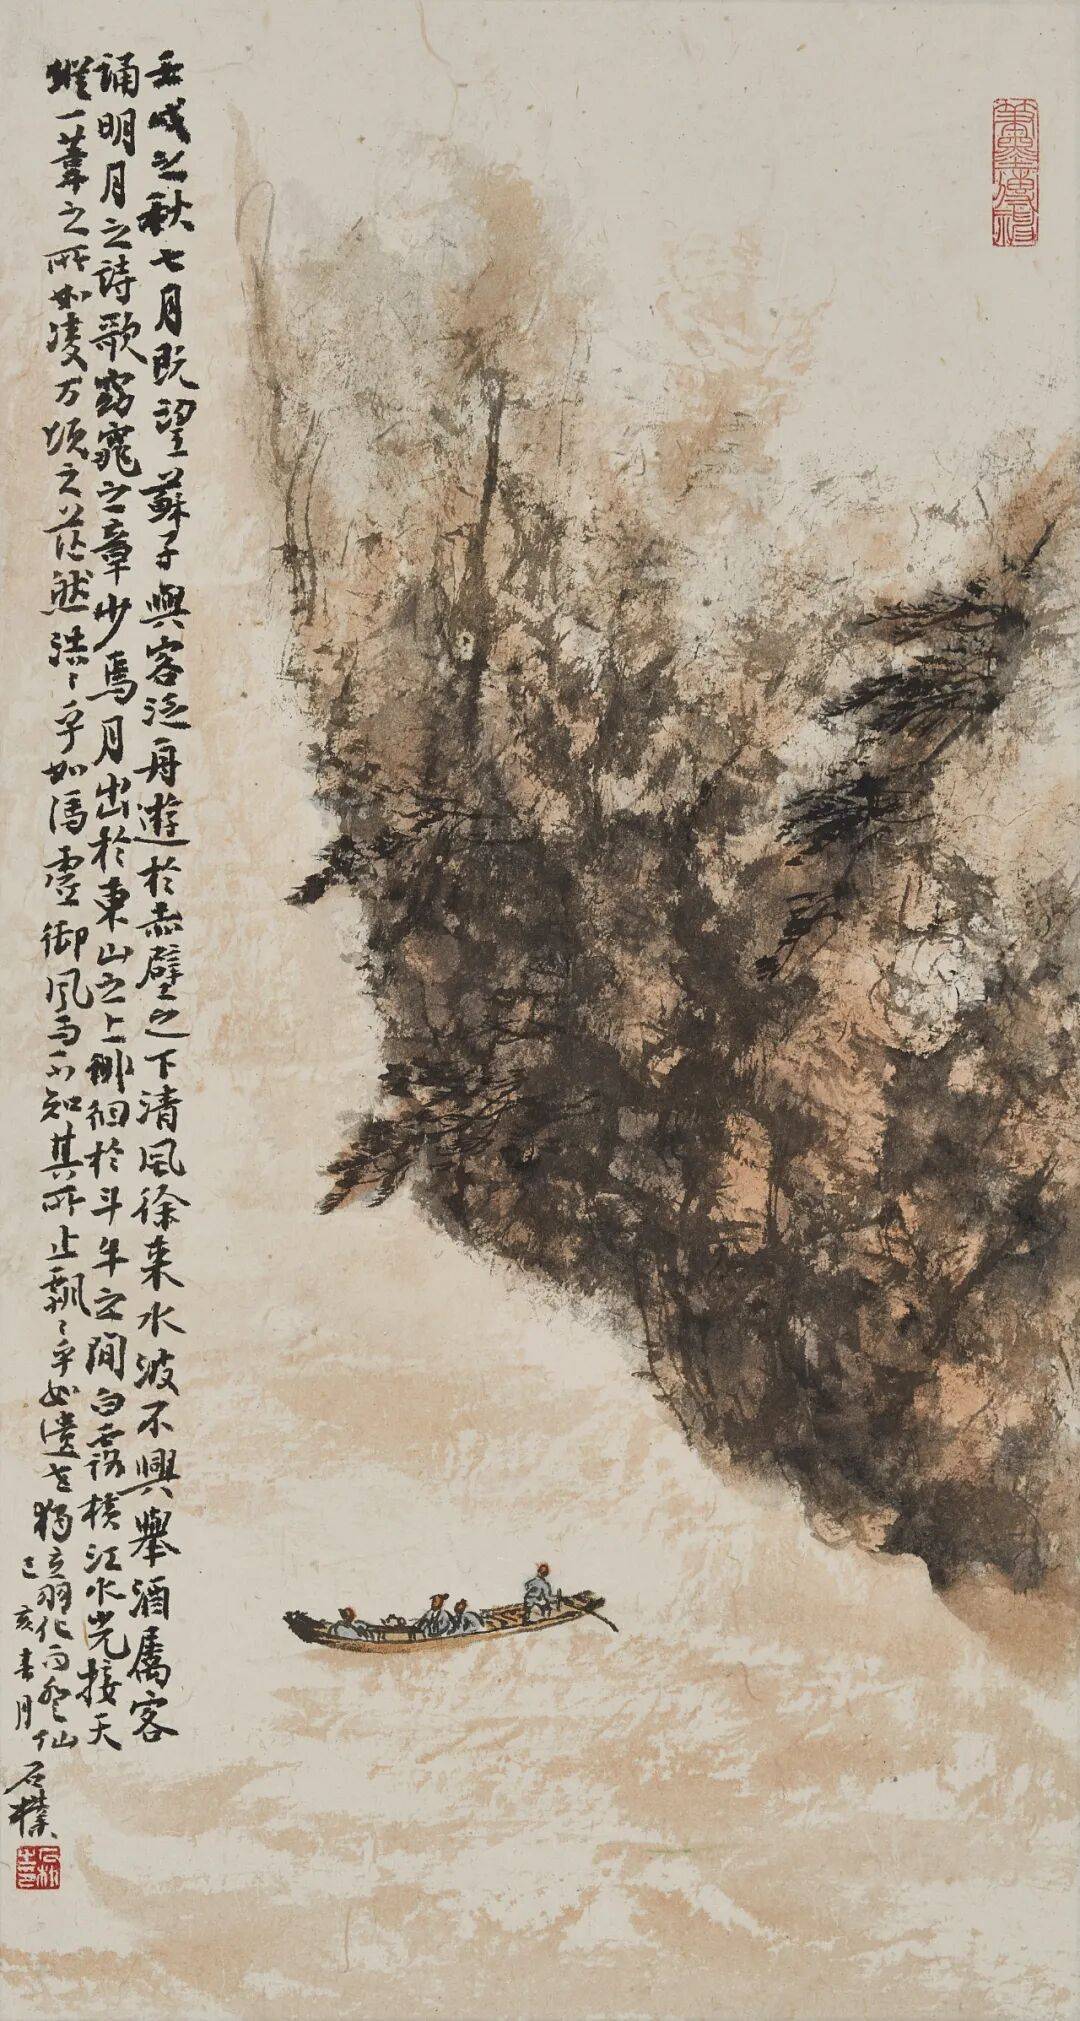 筆墨傳神
壬戌之秋七月既望蘇子與客泛舟遊於赤壁之下清風徐来水波不興舉酒屬客
誦明月之詩歌窈窕之章少焉月出於東山之上徘徊於斗牛之間白露横江水光接天
縱一葦之所如凌万頃之茫然浩〻乎如馮虚御風而不知其所止飄〻乎如遺世獨立羽化而登仙
己亥春月
石樸